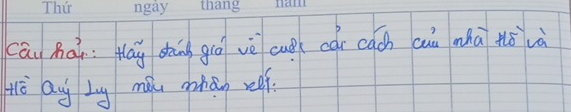 Thứ ngày tháng năm
Câu hỏi: Hãy đánh giá về cuộc cải cách của nhà Hồ và
Hồ Quý Ly nêu nhận xét.